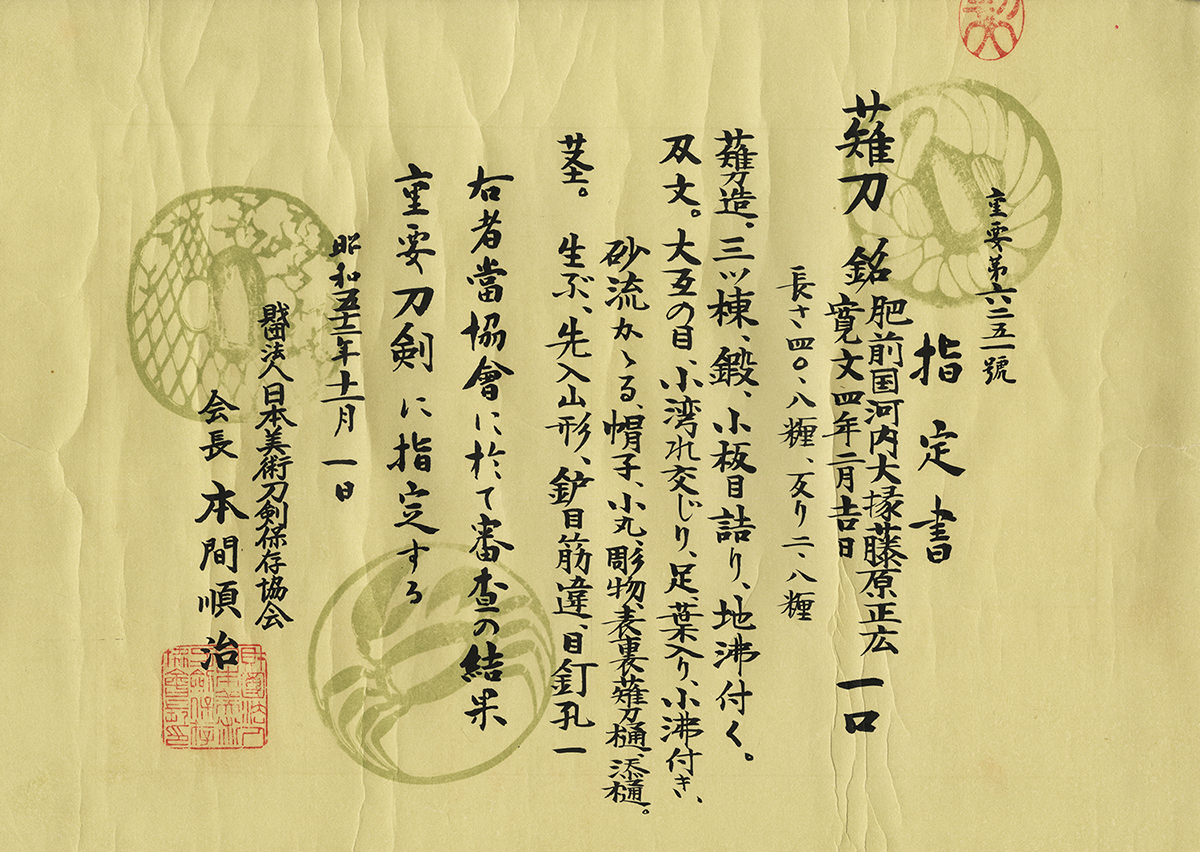 重要第六二五一號
指定書
薙刀 銘 肥前国河内大掾藤原正広 一口
寛文四年二月吉日
長さ、四〇・八糎、反り二・八糎
薙刀造、三ッ棟、鍛、小板目詰り、地沸付く。
刄文。大互の目、小湾れ交じり、足、葉入り、小沸付き、
砂流かゝる、帽子、小丸、彫物、表裏薙刀樋、添樋。
茎。 生ぶ、先入山形、鈩目筋違、目釘孔一
右者當協會に於て審査の結果
重要刀剣に指定する
昭和五十二年十一月一日
財団法人日本美術刀剣保存協会
会長 本間順治